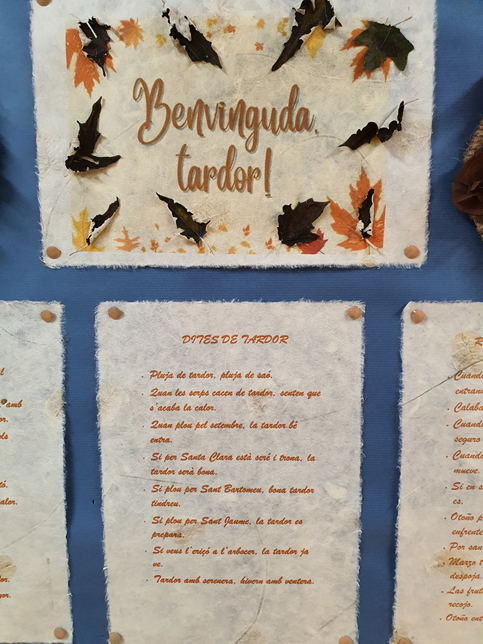 Benvinguda,
tardor!
DITES DE TARDOR
· Pluja de tardor, pluja de saó.
· Quan les serps cacen de tardor, senten que
s'acaba la calor.
· Quan plou pel setembre, la tardor bé
entra.
· Si per Santa Clara està seré i trona, la
tardor serà bona.
· Si plou per Sant Bartomeu, bona tardor
tindreu.
· Si plou per Sant Jaume, la tardor es
prepara.
· Si veus l'eriçó a l'arbecer, la tardor ja
ve.
· Tardor amb serenera, hivern amb ventera.
amb
· Cuando
entran
· Calaba
· Cuando
seguro
· Cuando
mueve.
· Si en s
es.
· Otoño p
enfrente
· Por san
· Marzo t
despoja
· Las frut
recojo.
· Otoño ent